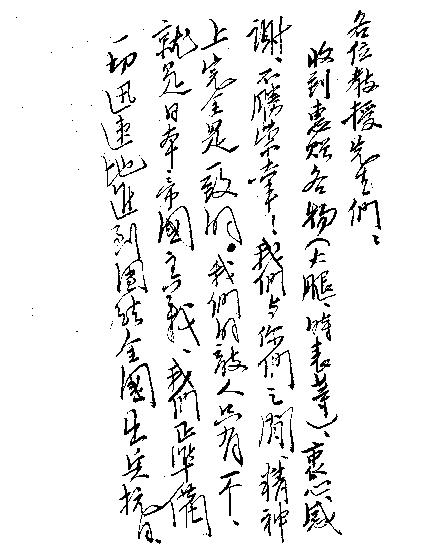 各位教授先生們：
收到惠贈各物（火腿、時表等）、衷心感
謝、不勝榮幸！我們与你們之間、精神
上完全是一致的。我們的敵人只有一个、
就是日本帝國主義、我們正準備
一切迅速地進到團結全國出兵抗日、